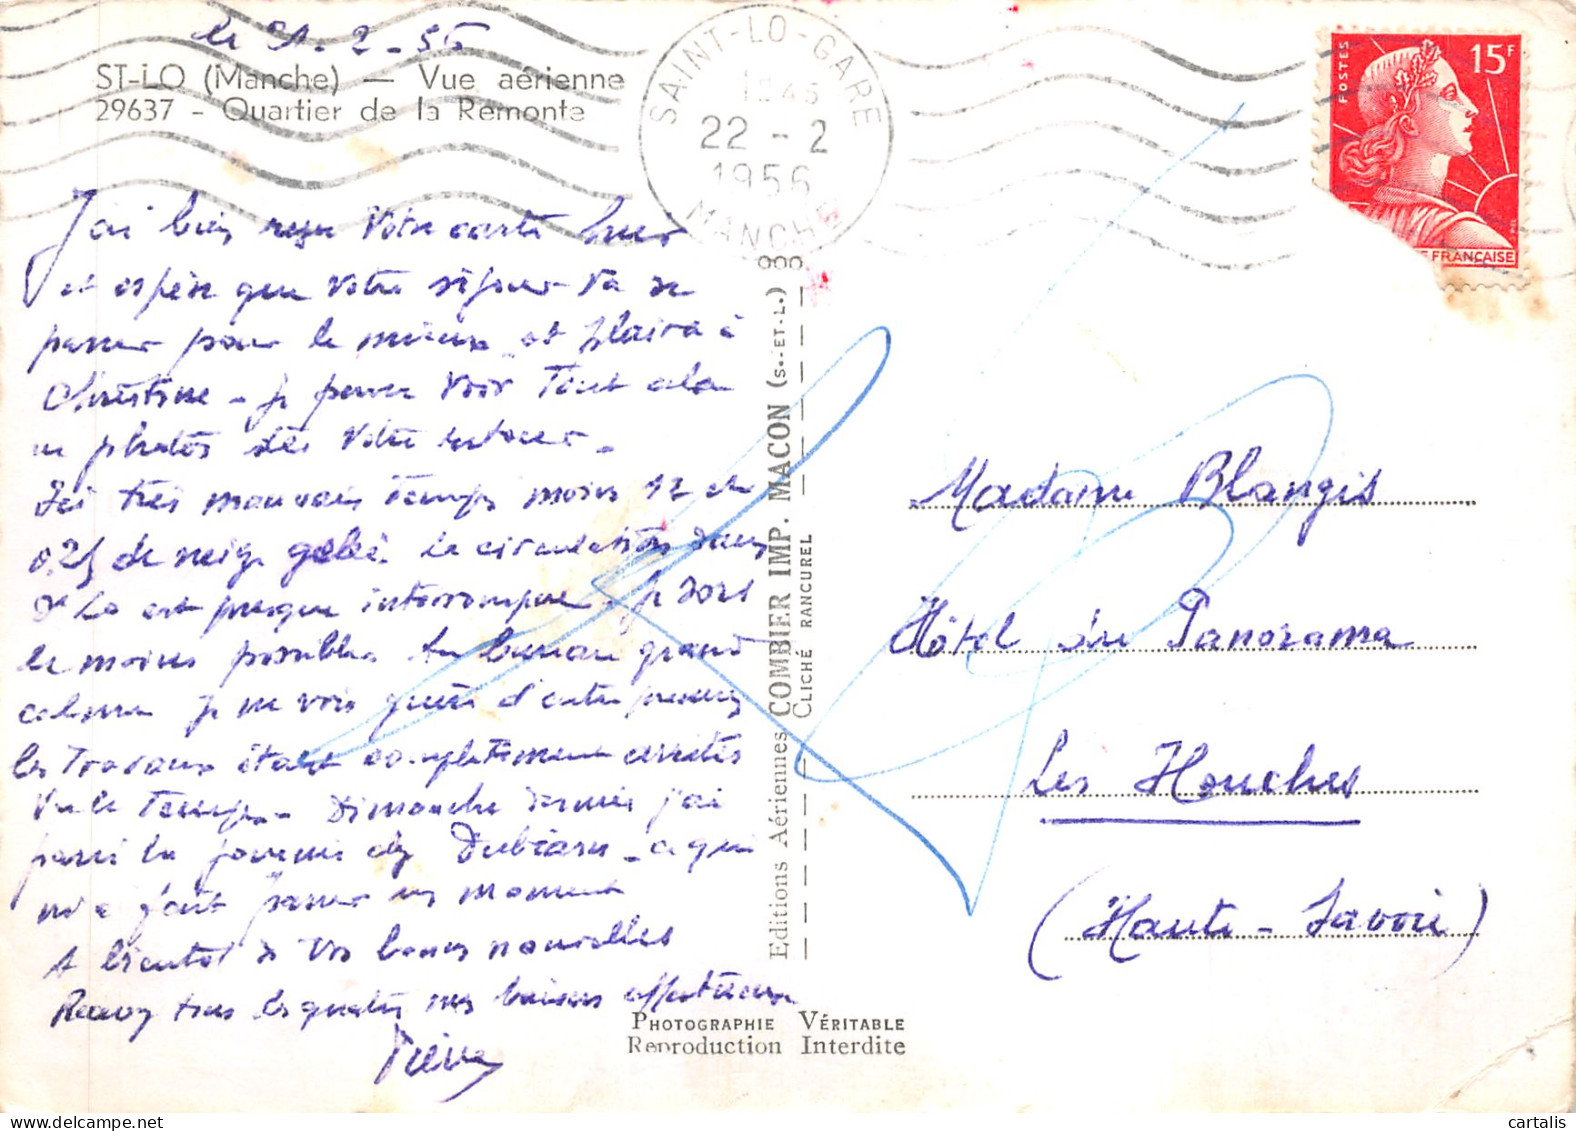 le 21-2-56
ST-LO (Manche) — Vue aérienne
29637 - Quartier de la Remonte
SAINT-LO-GARE
1845
22 - 2
1956
MANCHE
POSTES
15F
FRANÇAISE
J'ai bien reçu Votre carte hier
et espère que Votre séjour Va se
passer pour le mieux et plaira à
Christine - je pense Voir Tout cela
en photos dès Votre retour.
Ici très mauvais Temps moins 12 et
0,25 de neige gelée. la circulation dans
St Lo est presque interrompue. je sors
le moins possible. Au bureau grand
calme je ne vois guère d'entrepreneurs
les Travaux étant complètement arrêtés
Vu le Temps. Dimanche dernier j'ai
passé la journée chez - ce qui
m'a fait passer un moment
A bientôt de Vos bonnes nouvelles
Recevez tous les quatre mes baisers affectueux
Pierre
Editions Aériennes COMBIER IMP. MACON (S.-ET-L.)
CLICHÉ RANCUREL
PHOTOGRAPHIE VÉRITABLE
Reproduction Interdite
Madame Blangis
Hôtel du Panorama
Les Houches
(Haute-Savoie)
cartalis